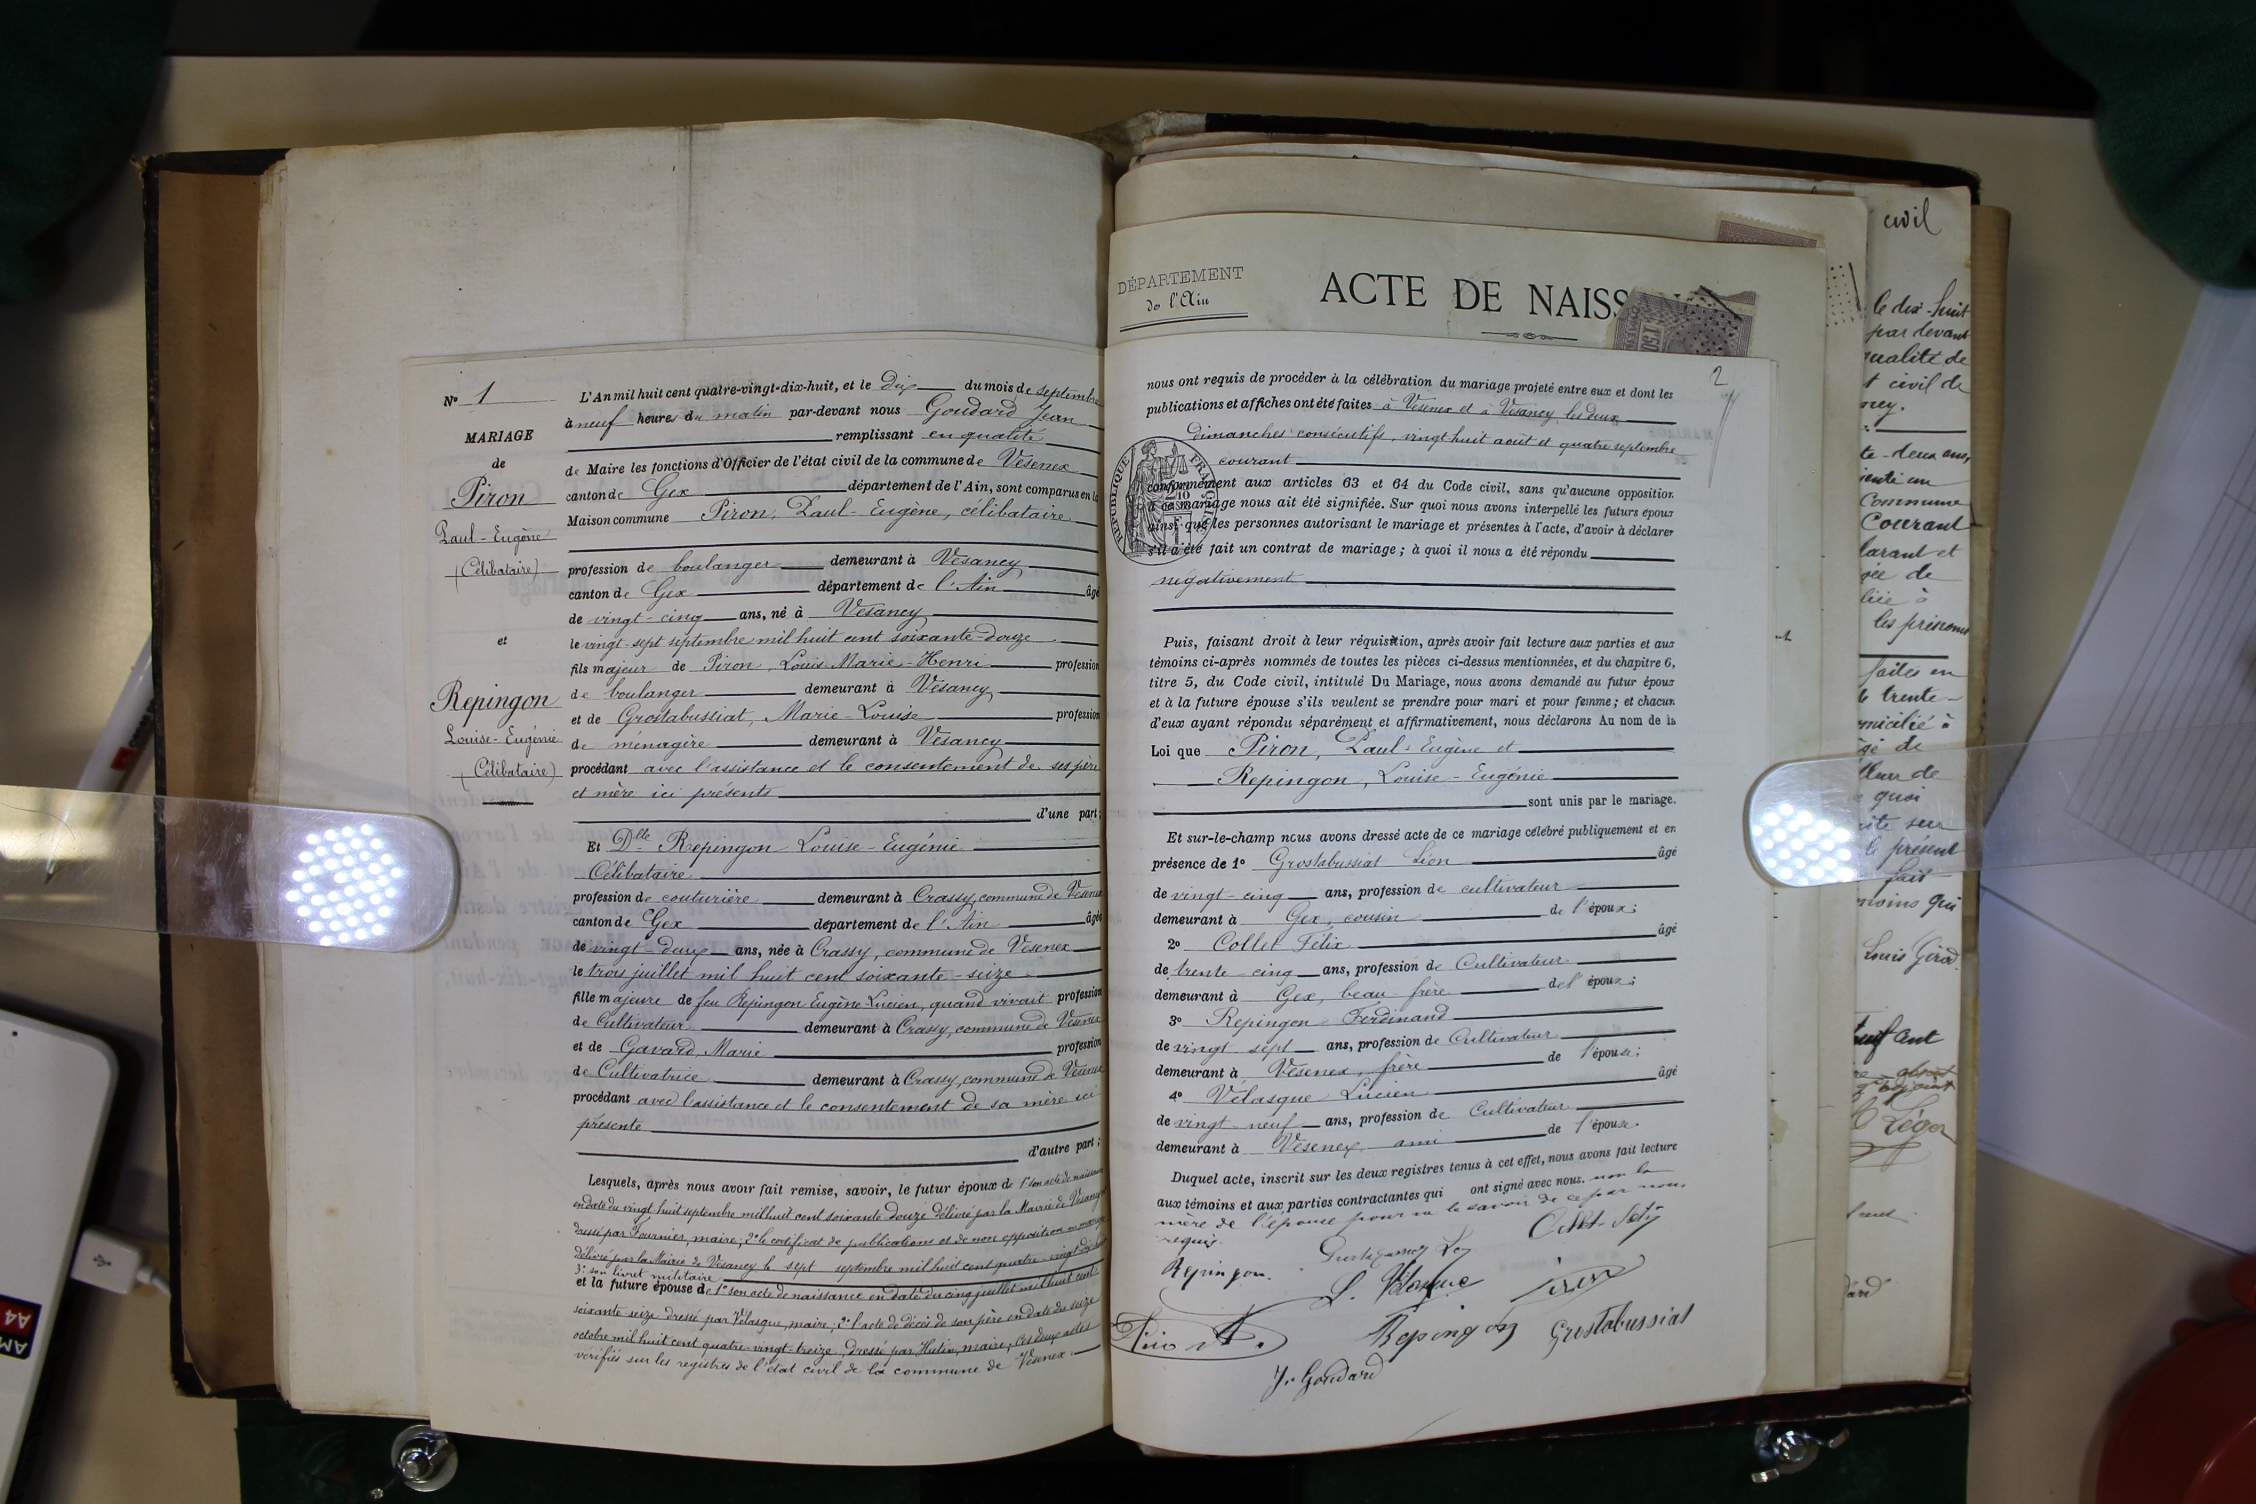 N° 1
MARIAGE
de
Piron
Paul-Eugène
(Célibataire)
et
Repingon
Louise-Eugénie
(Célibataire)
L'An mil huit cent quatre-vingt-dix-huit, et le dix du mois de septembre
à neuf heures du matin par-devant nous Goudard Jean
remplissant en qualité
de Maire les fonctions d'Officier de l'état civil de la commune de Vesenex
canton de Gex département de l'Ain, sont comparus en la
Maison commune Piron, Paul-Eugène, célibataire
profession de boulanger demeurant à Vesancy
canton de Gex département de l'Ain âgé
de vingt-cinq ans, né à Vesancy
le vingt-sept septembre mil huit cent soixante-douze
fils majeur de Piron, Louis Marie-Henri profession
de boulanger demeurant à Vesancy
et de Grostabussiat, Marie-Louise profession
de ménagère demeurant à Vesancy
procédant avec l'assistance et le consentement de ses père
et mère ici présents
d'une part;
Et Dlle Repingon Louise-Eugénie
Célibataire
profession de couturière demeurant à Crassy, commune de Vesenex
canton de Gex département de l'Ain âgée
de vingt-deux ans, née à Crassy, commune de Vesenex
le trois juillet mil huit cent soixante-seize
fille majeure de feu Repingon Eugène Lucien, quand vivait profession
de Cultivateur demeurant à Crassy, commune de Vesenex
et de Gavard, Marie profession
de Cultivatrice demeurant à Crassy, commune de Vesenex
procédant avec l'assistance et le consentement de sa mère ici
présente
d'autre part;
Lesquels, après nous avoir fait remise, savoir, le futur époux de 1° son acte de naissance
en date du vingt huit septembre mil huit cent soixante douze délivré par la Mairie de Vesancy
dressé par Fournier, maire; 2° le certificat de publications et de non opposition au mariage
délivré par la Mairie de Vesancy le sept septembre mil huit cent quatre-vingt dix huit
3° son livret militaire
et la future épouse de 1° son acte de naissance en date du cinq juillet mil huit cent
soixante-seize dressé par Vélasque, maire; 2° l'acte de décès de son père en date du seize
octobre mil huit cent quatre-vingt-treize, dressé par Hutin, maire; ces deux actes
vérifiés sur les registres de l'état civil de la commune de Vesenex
DÉPARTEMENT
de l'Ain
ACTE DE NAISS
2
nous ont requis de procéder à la célébration du mariage projeté entre eux et dont les
publications et affiches ont été faites à Vesenex et à Vesancy les deux
dimanches consécutifs, vingt huit août et quatre septembre
courant
conformément aux articles 63 et 64 du Code civil, sans qu'aucune opposition
à ce mariage nous ait été signifiée. Sur quoi nous avons interpellé les futurs époux
ainsi que les personnes autorisant le mariage et présentes à l'acte, d'avoir à déclarer
s'il a été fait un contrat de mariage; à quoi il nous a été répondu
négativement
RÉPUBLIQUE FRANÇAISE
Puis, faisant droit à leur réquisition, après avoir fait lecture aux parties et aux
témoins ci-après nommés de toutes les pièces ci-dessus mentionnées, et du chapitre 6,
titre 5, du Code civil, intitulé Du Mariage, nous avons demandé au futur époux
et à la future épouse s'ils veulent se prendre pour mari et pour femme; et chacun
d'eux ayant répondu séparément et affirmativement, nous déclarons Au nom de la
Loi que Piron, Paul-Eugène et
Repingon, Louise-Eugénie
sont unis par le mariage.
Et sur-le-champ nous avons dressé acte de ce mariage célébré publiquement et en
présence de 1° Grostabussiat Léon âgé
de vingt-cinq ans, profession de cultivateur
demeurant à Gex, cousin de l'époux;
2° Collet Félix âgé
de trente-cinq ans, profession de Cultivateur
demeurant à Gex, beau-frère de l'époux;
3° Repingon Ferdinand
de vingt sept ans, profession de Cultivateur
demeurant à Vesenex, frère de l'épouse;
4° Vélasque Lucien âgé
de vingt-neuf ans, profession de Cultivateur
demeurant à Vesenex ami de l'épouse.
Duquel acte, inscrit sur les deux registres tenus à cet effet, nous avons fait lecture
aux témoins et aux parties contractantes qui ont signé avec nous. non la
mère de l'épouse pour ne le savoir de ce par nous
requis.
Repingon.
Repingon
Grostabussiat
Jn Goudard
civil
le dix-huit
par devant
qualité de
civil de
Commune
Courant
larant et
les prénoms
faites en
trente-
quoi
présent
Louis Girod
Léger